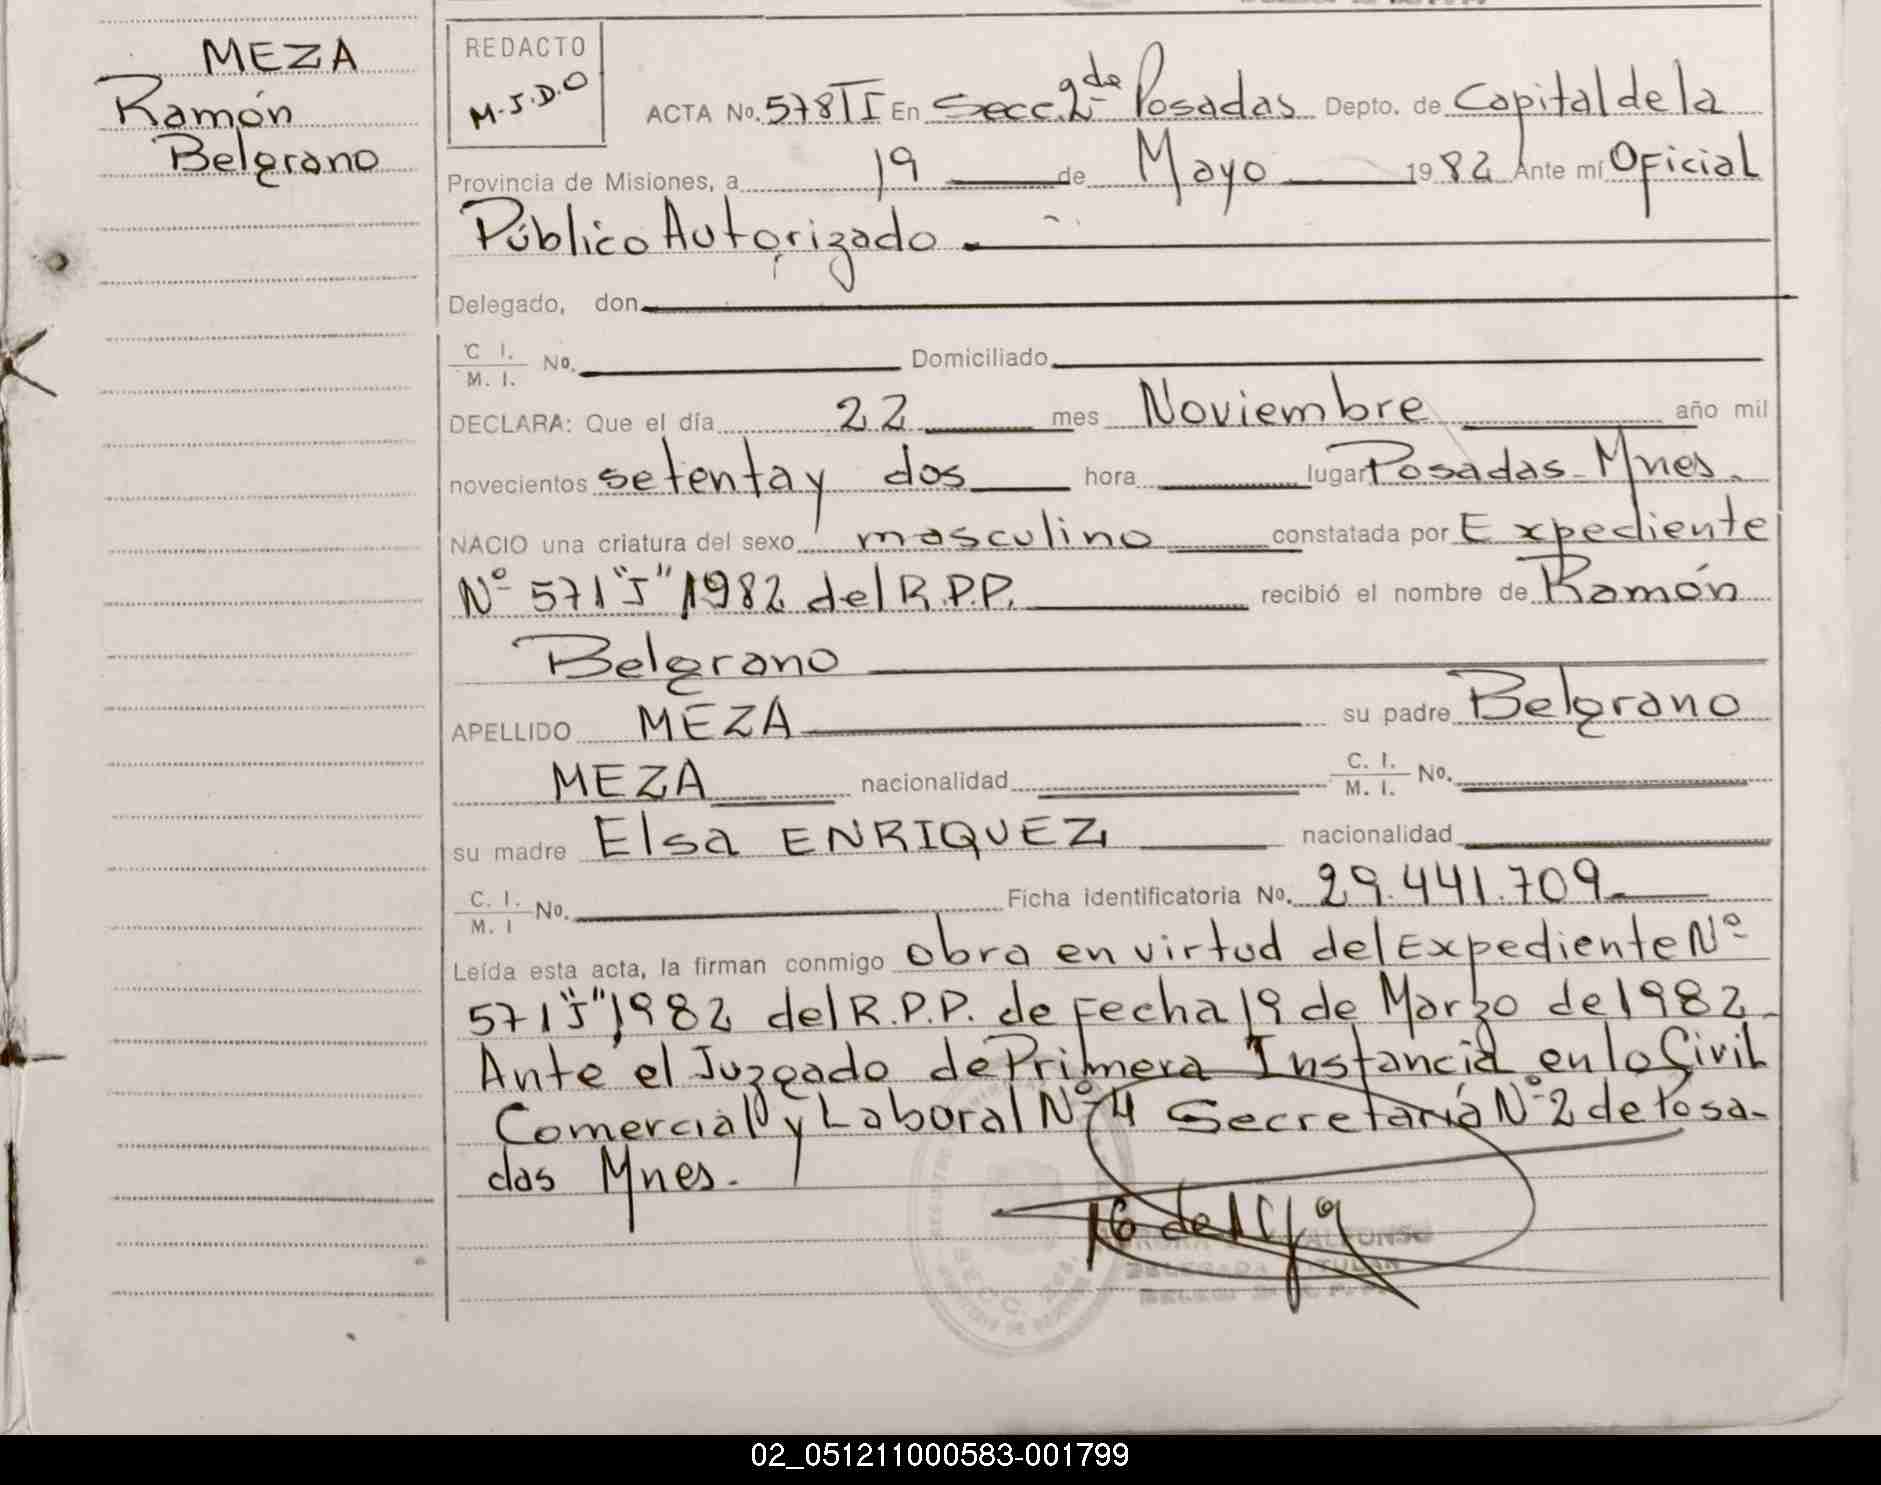 MEZA
Ramón
Belgrano
REDACTO
M.J.D.O
ACTA No. 578 TI En Secc. 2da Posadas Depto. de Capital de la
Provincia de Misiones, a 19 de Mayo 1982 Ante mí Oficial
Público Autorizado
Delegado, don
C I.
M. I. No. Domiciliado
DECLARA: Que el día 22 mes Noviembre año mil
novecientos setenta y dos hora lugar Posadas - Mnes.
NACIO una criatura del sexo masculino constatada por Expediente
Nº 571 "J" 1982 del R.P.P. recibió el nombre de Ramón
Belgrano
APELLIDO MEZA su padre Belgrano
MEZA nacionalidad C. I. M. I. No.
su madre Elsa ENRIQUEZ nacionalidad
C. I. M. I No. Ficha identificatoria No. 29.441.709
Leída esta acta, la firman conmigo obra en virtud del Expediente Nº
571 "J" 1982 del R.P.P. de Fecha 19 de Marzo de 1982
Ante el Juzgado de Primera Instancia en lo Civil
Comercial y Laboral Nº 4 Secretaría Nº 2 de Posa-
das Mnes.
ALFONSO
02_051211000583-001799